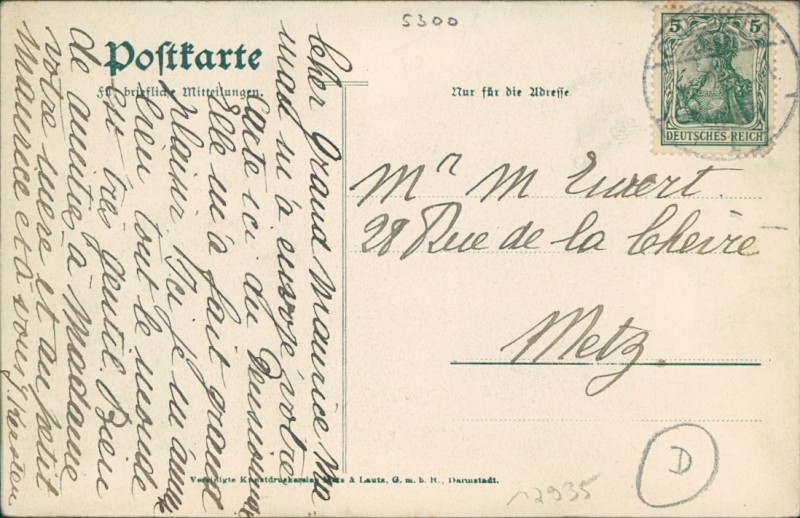 5300
Postkarte
Für briefliche Mitteilungen.
Nur für die Adresse
5 5
DEUTSCHES REICH
Cher grand Maurice Ma
mad m'a envoyé votre
Carte ici du
Elle m'a fait grand
plaisir. Ici je m'amuse
bien tout le monde
est très gentil. Bien
de amitiés à Madame
votre mère et au petit
Maurice et à vous
Mr M Evrert.
28 Rue de la Chèvre
Metz.
Vereinigte Kunstdruckereien Metz & Lautz, G. m. b. H., Darmstadt.
12935
D